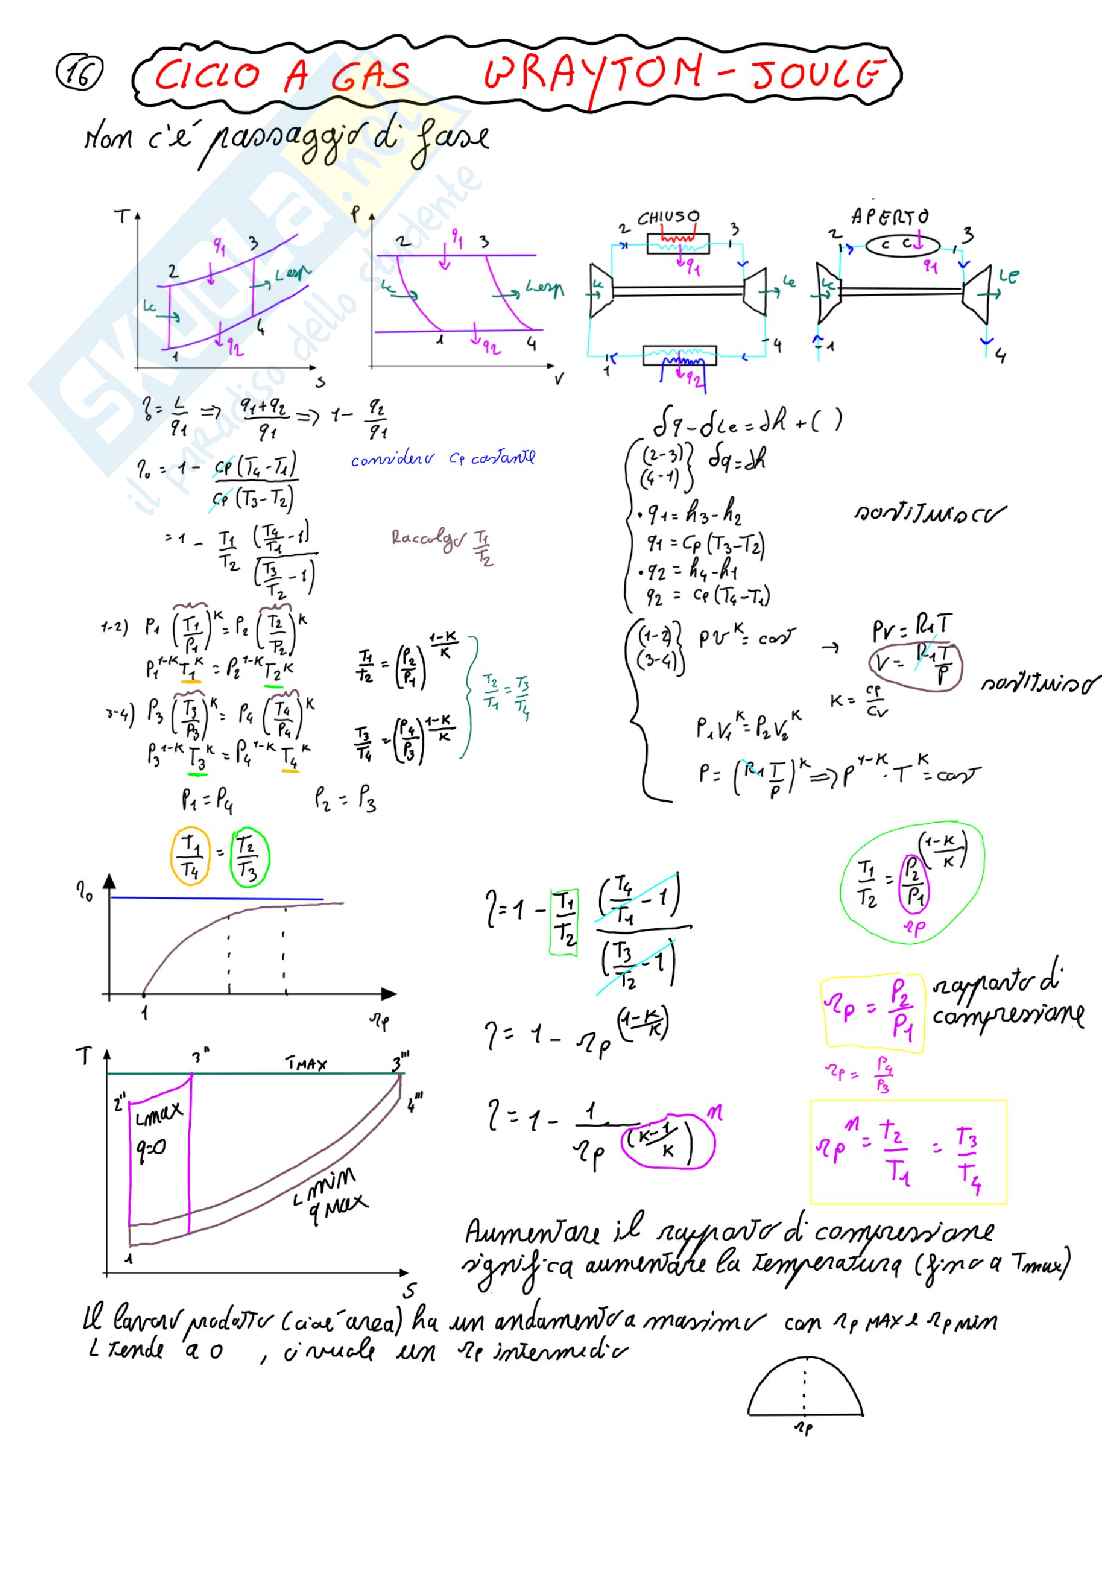 16
CICLO A GAS WRAYTOM - JOULE
Non c'è passaggio di fase
SKUOLA.net
il paradiso dello studente
T 2 q1 3 Lesp Lc 1 q2 4 S
P 2 q1 3 Lc Lesp 1 q2 4 V
CHIUSO 2 3 q1 Lc Le 1 q2 4
APERTO 2 C C 3 q1 Lc Le 1 4
η = L/q1 => (q1+q2)/q1 => 1 - q2/q1
η0 = 1 - cp(T4-T1)/cp(T3-T2)
considero cp costante
= 1 - T1/T2 (T4/T1 - 1)/(T3/T2 - 1)
Raccolgo T1/T2
1-2) P1 (T1/P1)^K = P2 (T2/P2)^K
P1^1-K T1^K = P2^1-K T2^K
T1/T2 = (P2/P1)^(1-K/K)
3-4) P3 (T3/P3)^K = P4 (T4/P4)^K
P3^1-K T3^K = P4^1-K T4^K
T3/T4 = (P4/P3)^(1-K/K)
T2/T1 = T3/T4
P1 = P4 P2 = P3
T1/T4 = T2/T3
δq - δLe = dh + ( )
(2-3) (4-1) δq = dh
• q1 = h3 - h2
q1 = cp(T3-T2)
• q2 = h4 - h1
q2 = cp(T4-T1)
sostituisco
(1-2) (3-4) PV^K = cost → PV = R1T
V = R1T/P
sostituisco
K = cp/cv
P1V1^K = P2V2^K
P = (R1 T/P)^K => P^1-K · T^K = cost
η0 1 rp
η = 1 - T1/T2 (T4/T1 - 1)/(T3/T2 - 1)
T1/T2 = (P2/P1)^(1-K/K)
rp
η = 1 - rp^(1-K/K)
rp = P2/P1 rapporto di compressione
rp = P4/P3
η = 1 - 1/rp^(K-1/K) n
rp^n = t2/T1 = T3/T4
T 3" TMAX 3''' 2" Lmax q=0 4''' Lmin qMAX 1 S
Aumentare il rapporto di compressione
significa aumentare la temperatura (fino a Tmax)
Il lavoro prodotto (cioè area) ha un andamento a massimo con rp MAX e rp min
L tende a 0, ci vuole un rp intermedio
rp